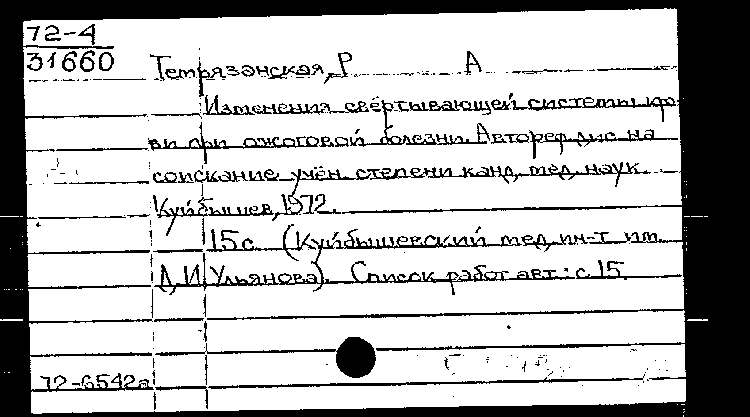 72-4
31660
Тетрязанская, Р А
Изменения свёртывающей системы кро-
ви при ожоговой болезни. Автореф дис на
соискание учён. степени канд. мед. наук.
Куйбышев, 1972.
15 с. (Куйбышевский мед. ин-т им.
Д. И. Ульянова). Список работ авт.: с. 15
72-6542а